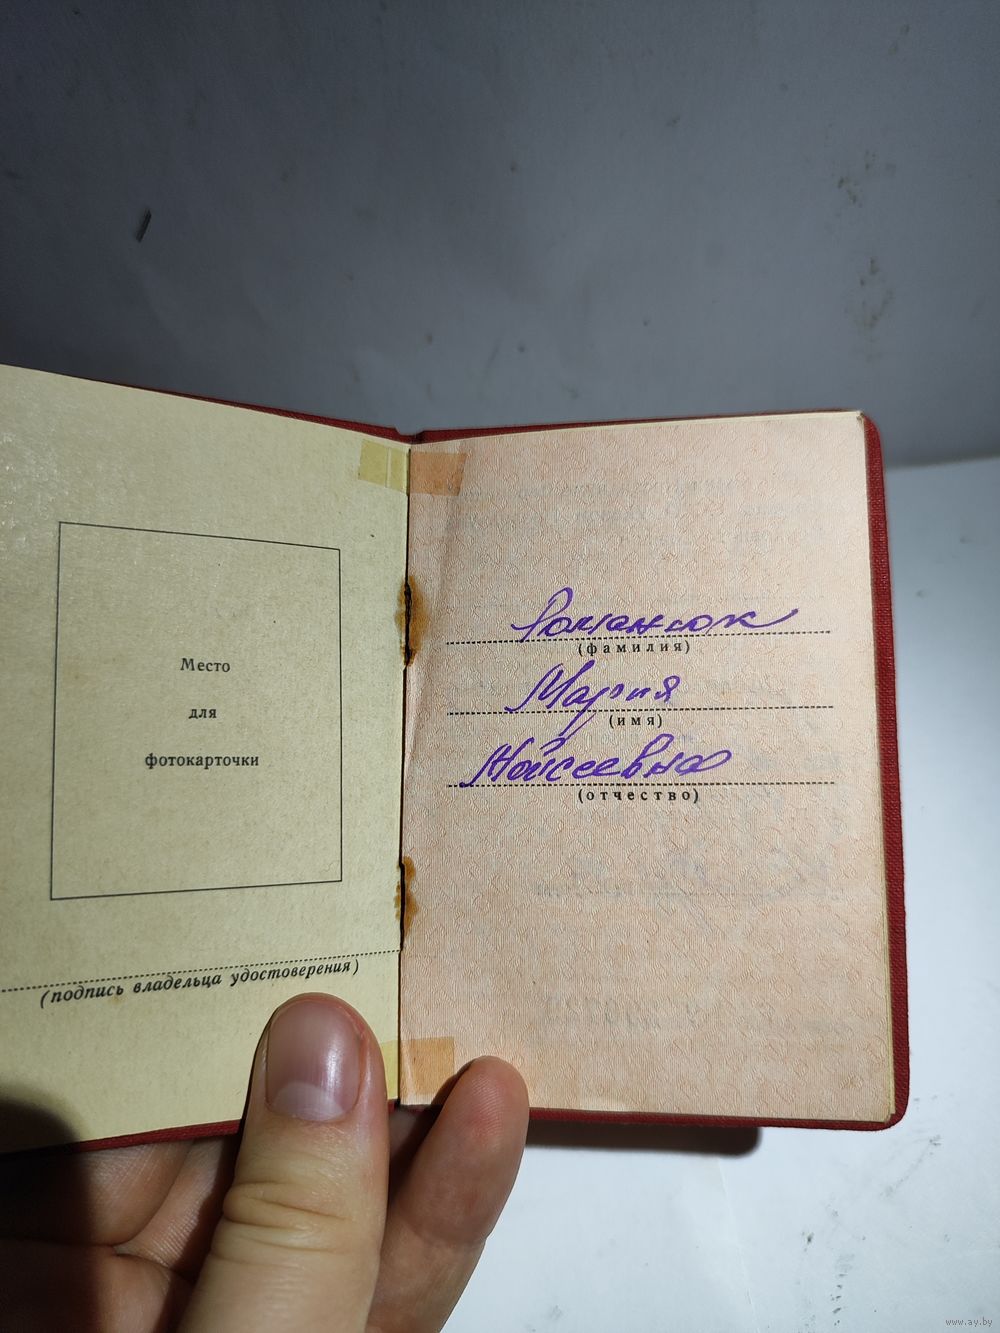 Место
для
фотокарточки
(подпись владельца удостоверения)
Романюк
(фамилия)
Мария
(имя)
Мойсеевна
(отчество)
www.ay.by